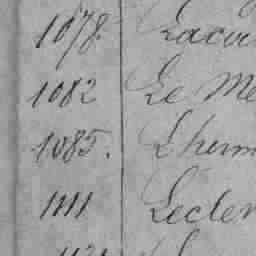 1078. Lacou
1082 Le Me
1085. Lherm
1111 Lecler